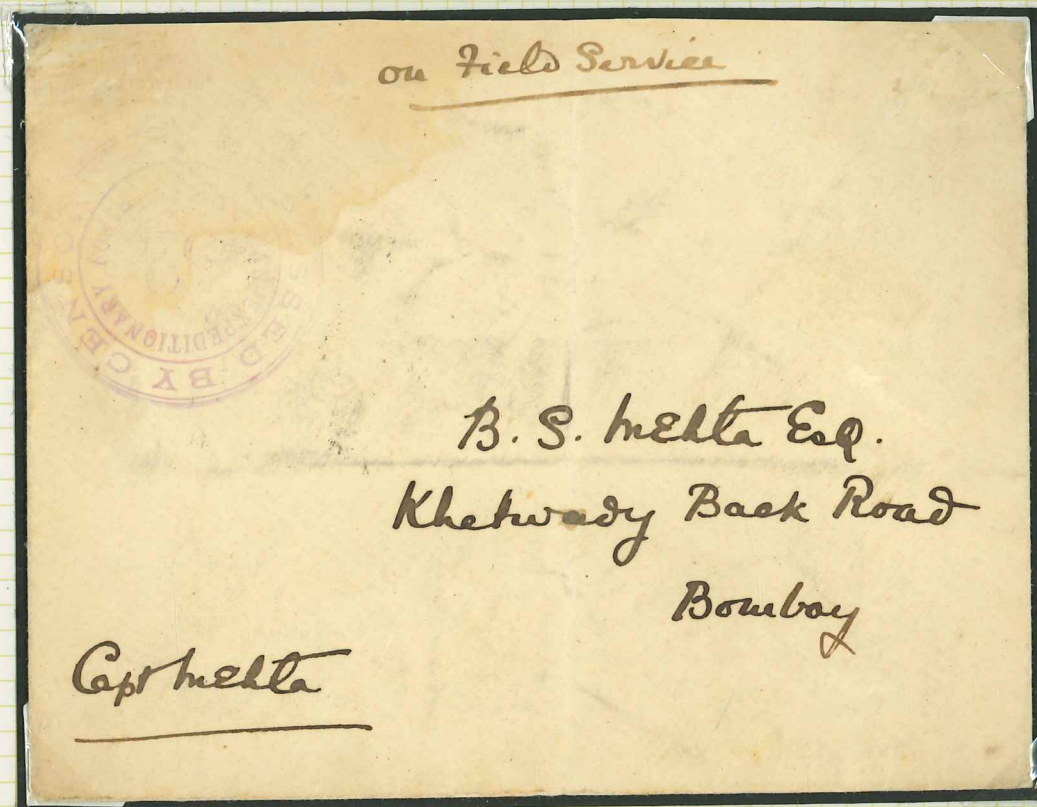 on Field Service
SED BY CENSO
EXPEDITIONARY FO
B. S. Mehta Esq.
Khetwady Back Road
Bombay
Capt Mehta